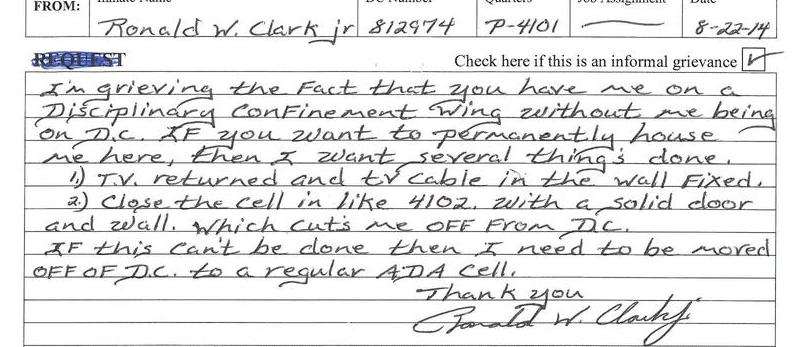 FROM: Inmate Name DC Number Quarters Job Assignment Date
Ronald W. Clark jr 812974 P-4101 8-22-14
REQUEST Check here if this is an informal grievance ✓
I'm grieving the Fact that you have me on a
Disciplinary Confinement Wing without me being
on D.C. IF you want to permanently house
me here, then I want several thing's done.
1.) T.V. returned and tv cable in the wall Fixed.
2.) Close the cell in like 4102. with a solid door
and wall. Which cut's me OFF From D.C.
IF this can't be done then I need to be moved
OFF OF D.C. to a regular ADA cell.
Thank you
Ronald W. Clark jr